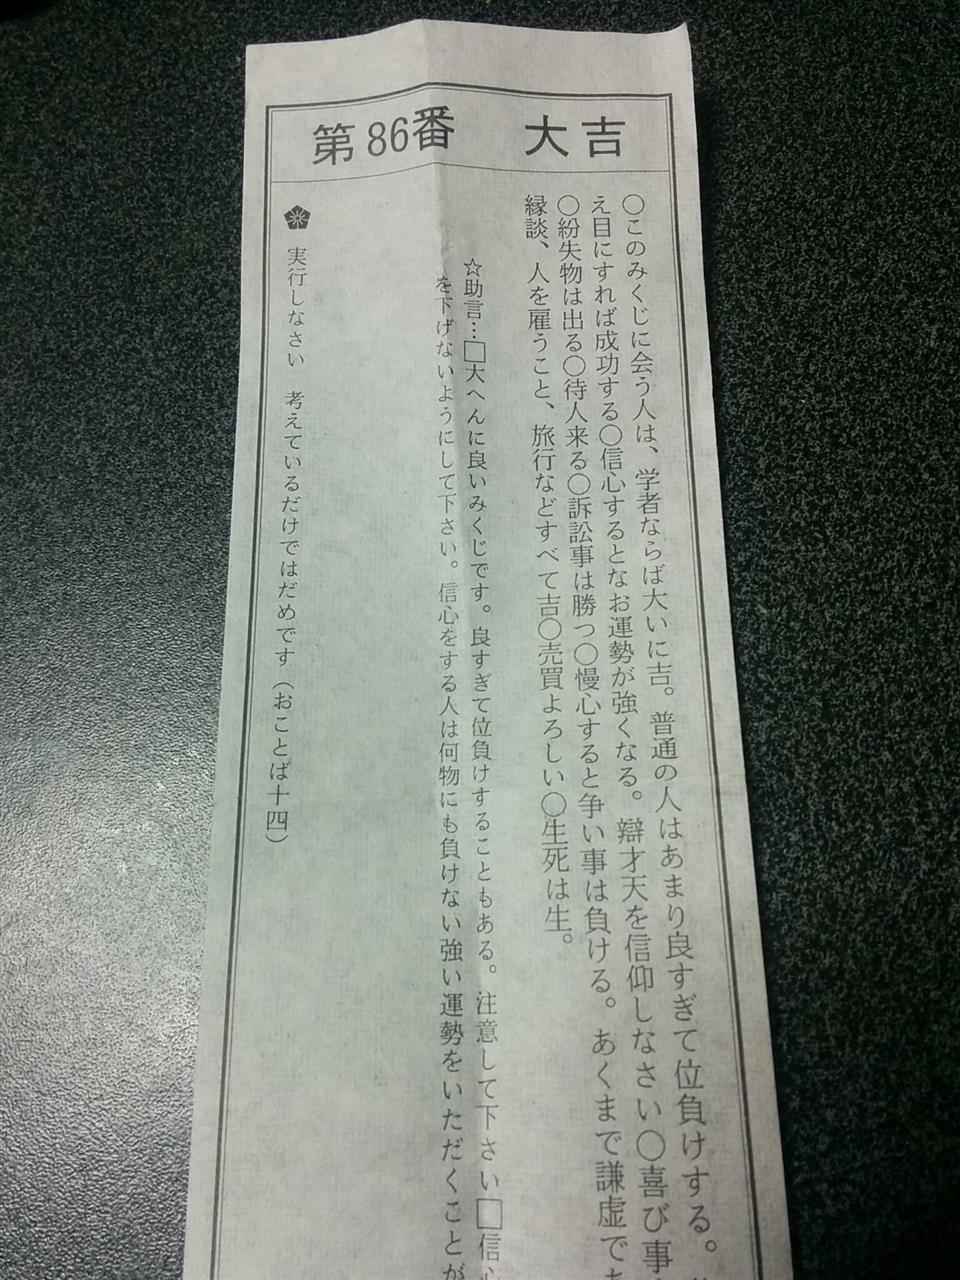 第86番 大吉
○このみくじに会う人は、学者ならば大いに吉。普通の人はあまり良すぎて位負けする。
え目にすれば成功する○信心するとなお運勢が強くなる。辯才天を信仰しなさい○喜び事
○紛失物は出る○待人来る○訴訟事は勝つ○慢心すると争い事は負ける。あくまで謙虚で
縁談、人を雇うこと、旅行などすべて吉○売買よろしい○生死は生。
☆助言…□大へんに良いみくじです。良すぎて位負けすることもある。注意して下さい□信心
を下げないようにして下さい。信心をする人は何物にも負けない強い運勢をいただくことが
実行しなさい 考えているだけではだめです（おことば十四）